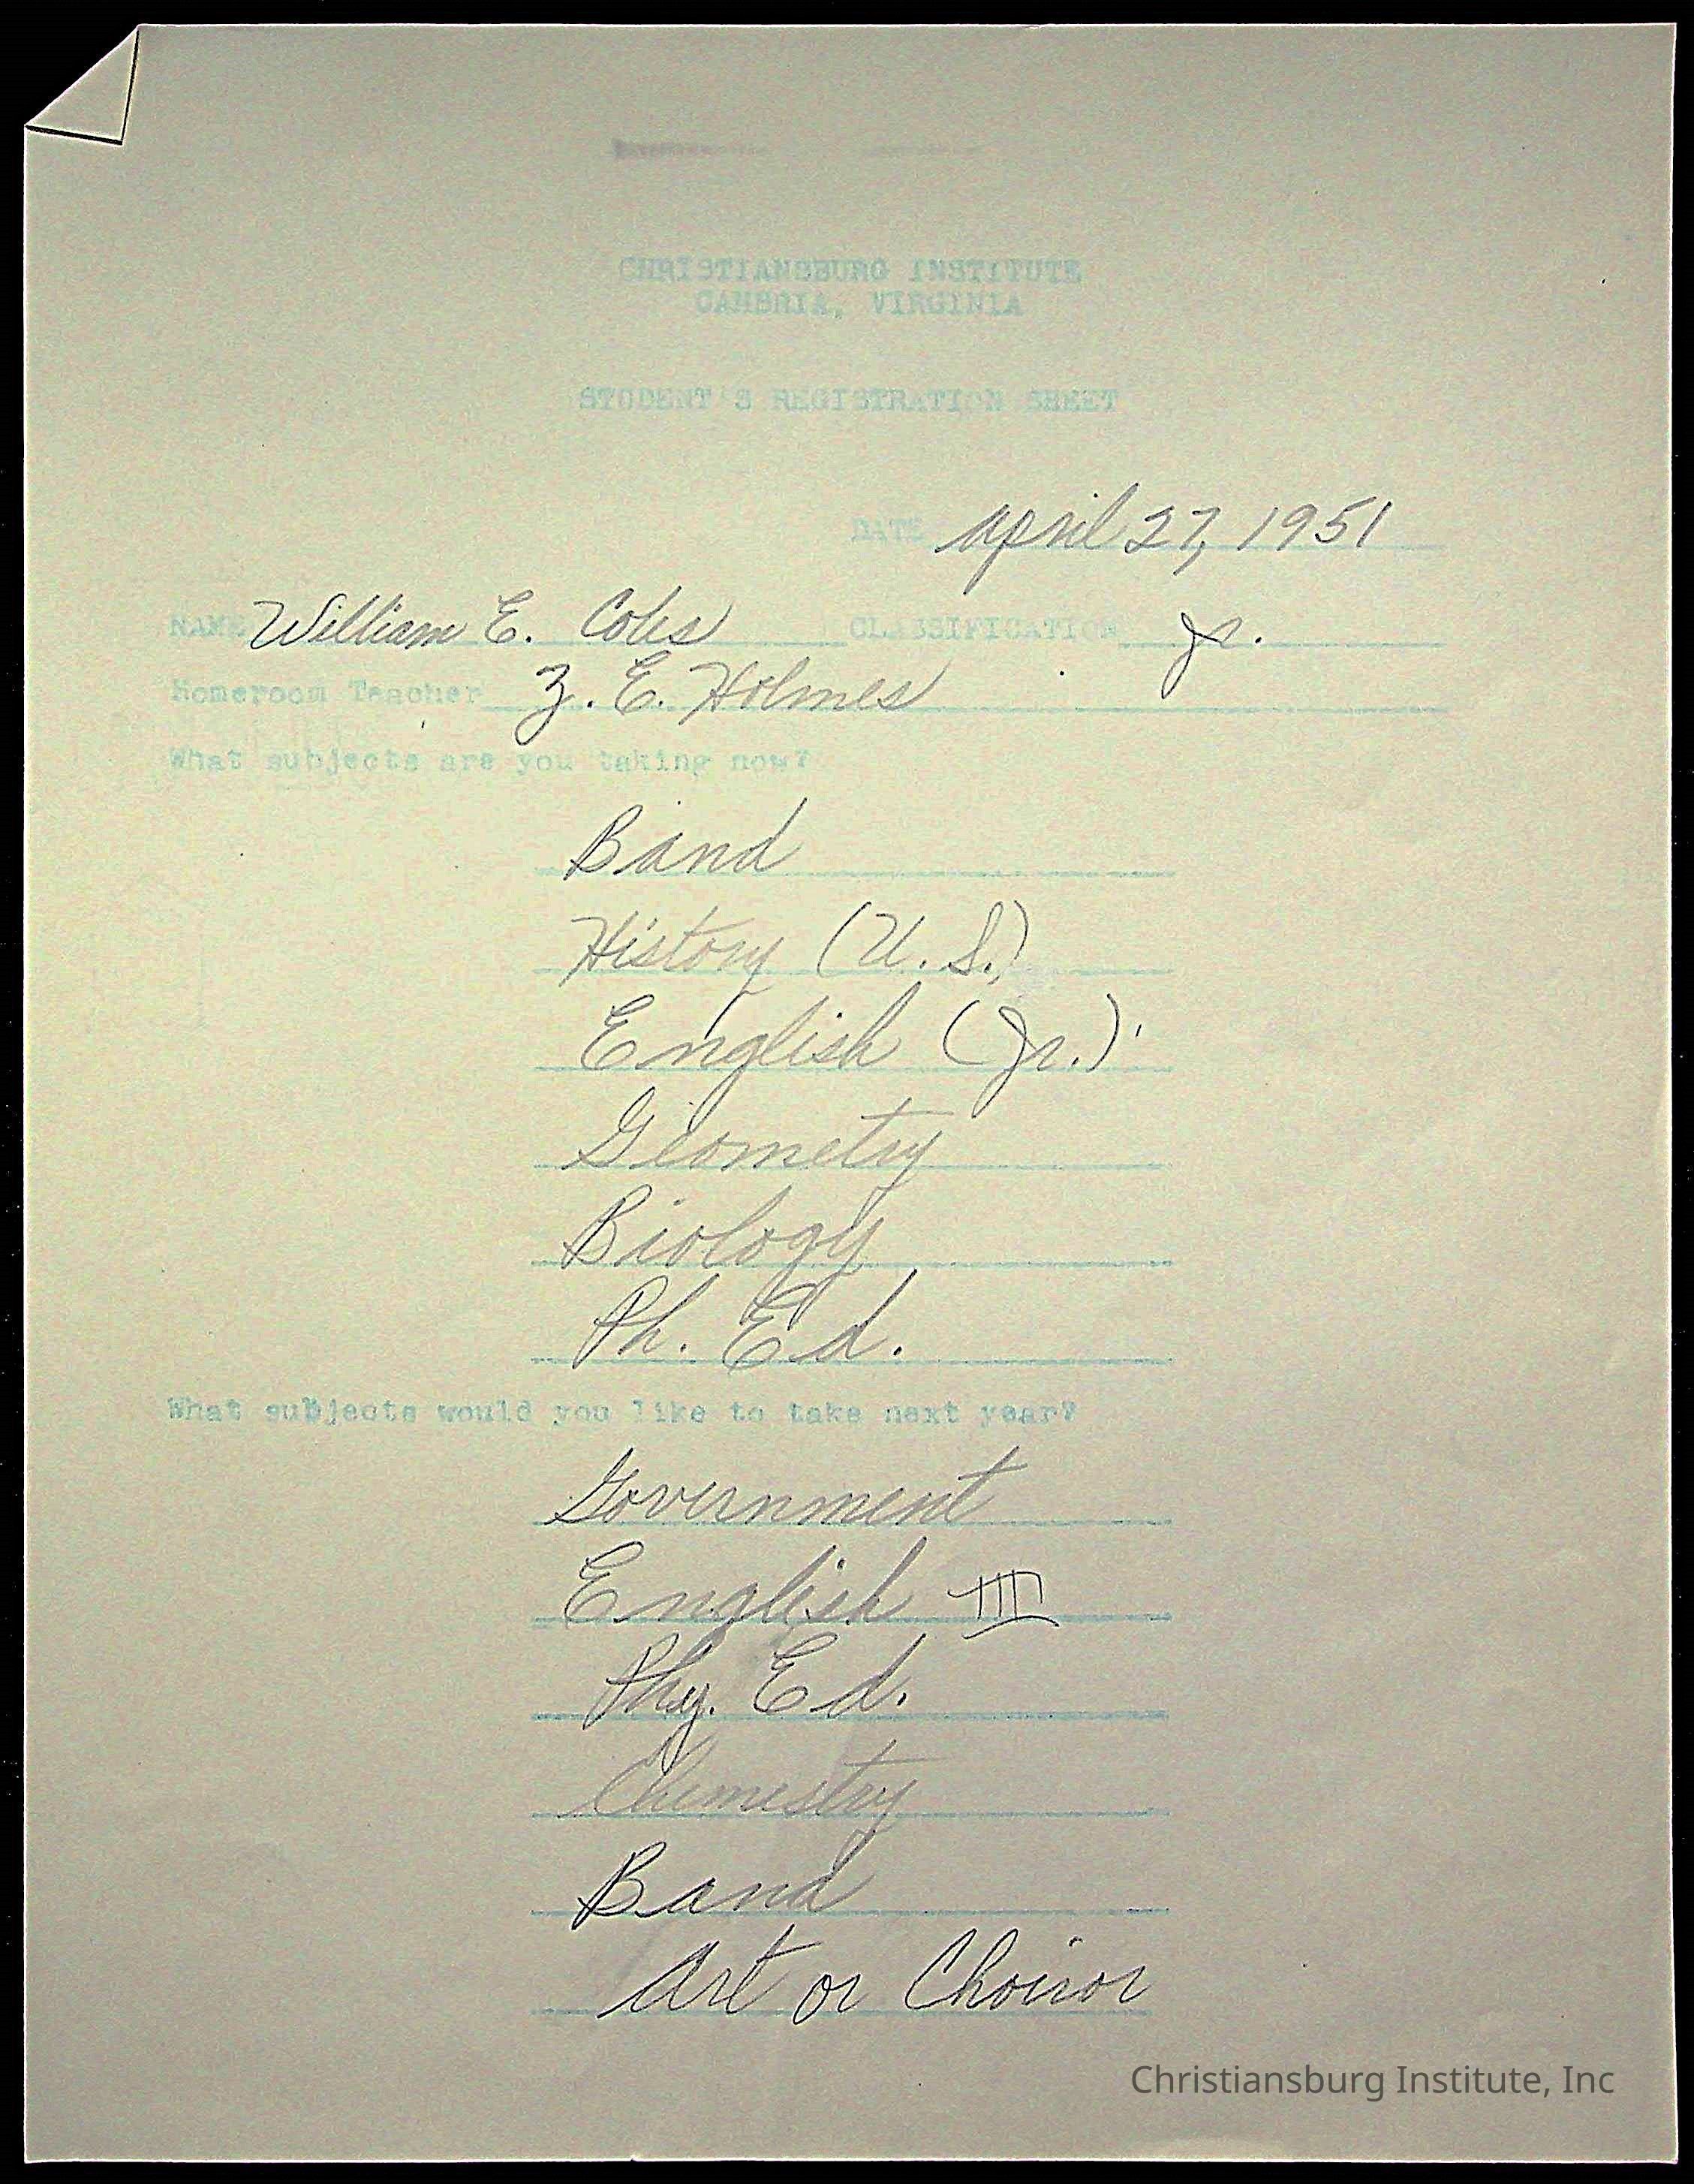 CHRISTIANSBURG INSTITUTE
CAMBRIA, VIRGINIA
STUDENT'S REGISTRATION SHEET
DATE April 27, 1951
NAME William E. Coles CLASSIFICATION Jr.
Homeroom Teacher Z. E. Holmes
What subjects are you taking now?
Band
History (U.S.)
English (Jr.)
Geometry
Biology
Ph. Ed.
What subjects would you like to take next year?
Government
English III
Phy. Ed.
Chemestry
Band
Art or Choiror
Christiansburg Institute, Inc